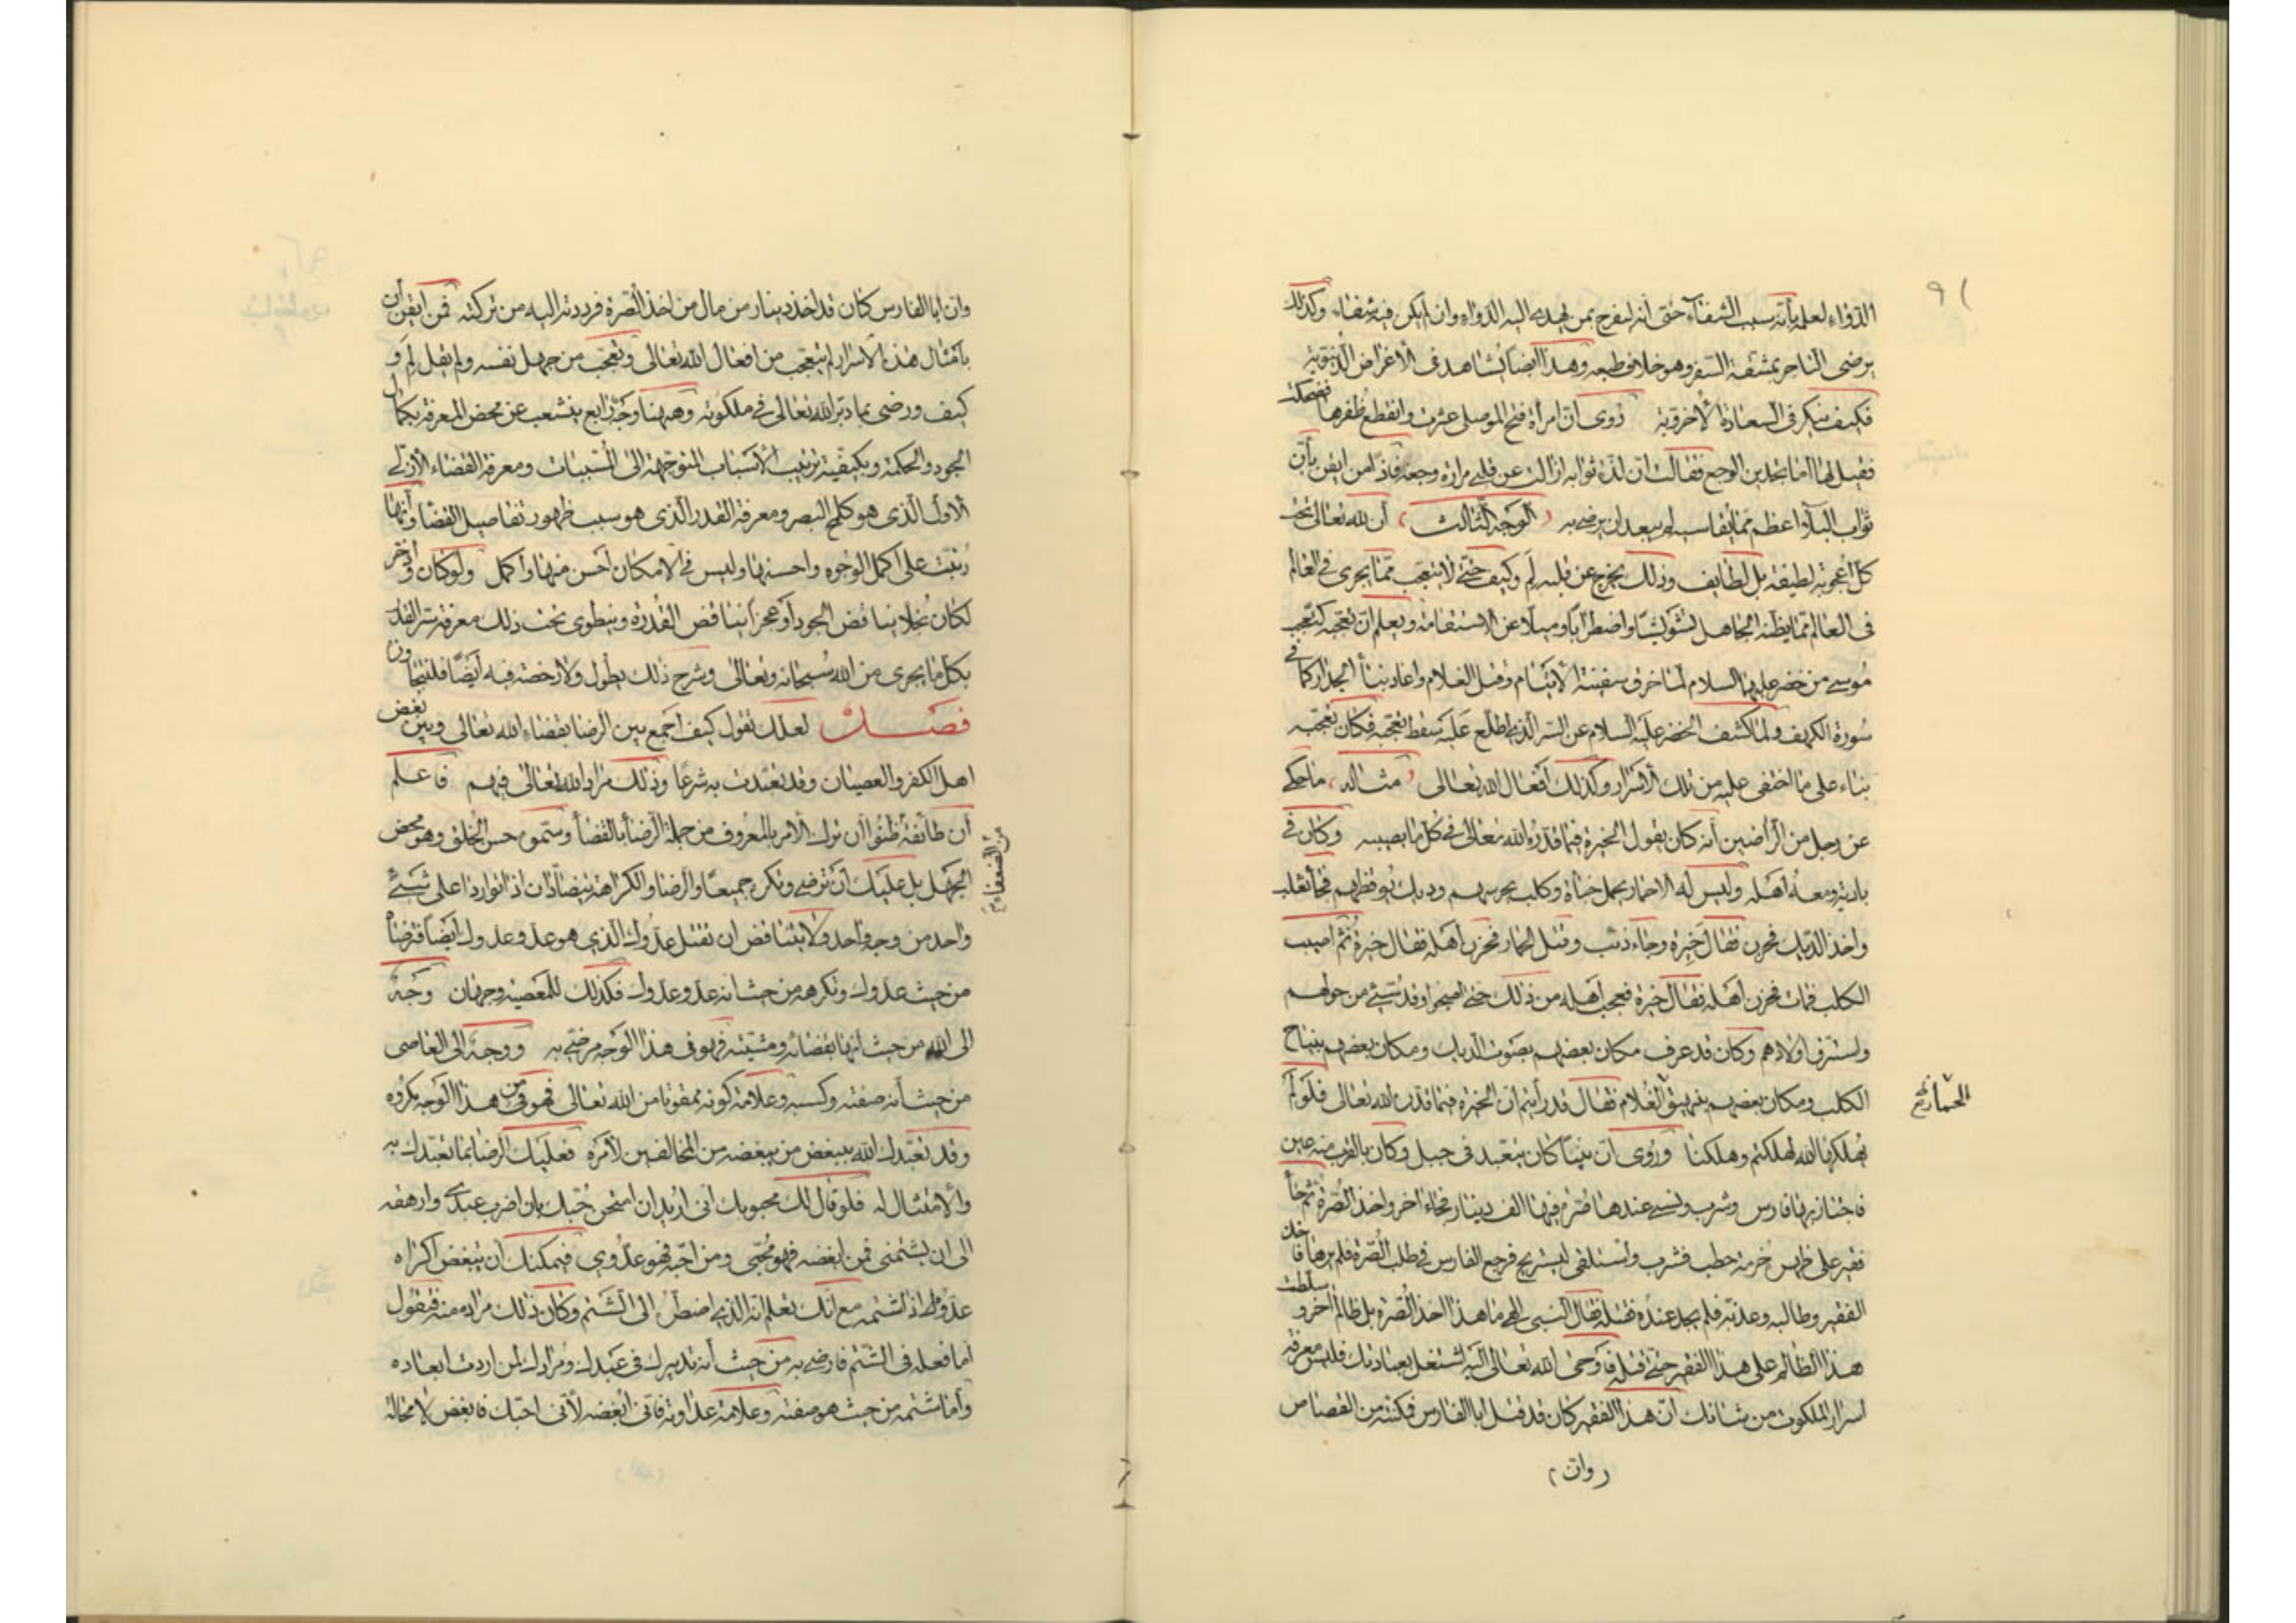 ٩١
الدواء لعلمه بأنه سبب الشفآء حتى أنه ليفرح بمن يهدى اليه الدواء وان لم يكن فيه شفاء وكذلك
يرضى التاجر بمشقة السفر وهو خلاف طبعه وهذا ايضا يشاهد فى الاغراض الدنيوية
فكيف ينكر فى السعادة الأخروية روى ان امرأة فتح الموصلى عثرت وانقطع ظفرها فضحكت
فقيل لها اما تجدين الوجع فقالت ان لذة ثوابه ازالت عن قلبى مرارة وجعه فاذا من ايقن بأن
ثواب البلآء اعظم مما يقاسيه لم يبعد ان يرضى به (الوجه الثالث) أن لله تعالى تحت
كل أعجوبة لطيفة بل لطايف وذلك يخرج عن قلبه لم وكيف حتى لا يتعجب ممّا يجرى فى العالم
فى العالم ممّا يظنه الجاهل تشويشا واضطرابا وميلا عن الاستقامة ويعلم ان تعجبه كتعجب
موسى من خضر عليهما السلام لما خرق سفينة الأيتام وقتل الغلام واعاد بنآء الجدار كما فى
سورة الكهف ولما كشف الخضر عليه السلام عن السر الذى اطلع عليه سقط تعجبه فكان تعجبه
بناء على ما اختفى عليه من تلك الأسرار وكذلك أفعال الله تعالى (مثاله) ما حكى
عن رجل من الرّاضين أنه كان يقول الخيرة فيما قدره الله تعالى فى كل ما يصيبه وكان فى
بادية ومعه أهله وليس له الا حمار يحمل خباة وكلب يحرسهم وديك يوقظهم فجآء ثعلب
واخذ الديك فحزن فقال خيرة وجاء ذئب وقتل الحمار فحزن أهله فقال خيرة ثم اصيب
الكلب فمات فحزن أهله فقال خيرة فعجب اهله من ذلك حتى اصبحوا وقد سُبى من حولهم
واسترق اولادهم وكان قد عرف مكان بعضهم بصوت الديك ومكان بعضهم بنباح
الكلب ومكان بعضهم بنهيق الغلام فقال قد رأيتم ان الخيرة فيما قدره الله تعالى فلو لم
الحمار نخ
يهلكها الله لهلكتم وهلكنا وروى أن نبيّا كان يتعبد فى جبل وكان بالقرب منه عين
فاجتاز بها فارس وشرب ونسى عندها صُرّة فيها الف دينار فجاء آخر واخذ الصُرّة ثم جآء
فقير على ظهره حزمة حطب فشرب واستلقى ليستريح فرجع الفارس فى طلب الصرّة فلم يرها فاخذ
الفقير وطالبه وعذبه فلم يجد عنده فقتله فقال النبى الهى ما هذا اخذ الصرة بل ظالم آخر وسلطت
هذا الظالم على هذا الفقير حتى قتله فأوحى الله تعالى اليه اشتغل بعبادتك فليس معرفة
اسرار الملكوت من شانك ان هذا الفقير كان قد قتل ابا الفارس فمكنته من القصاص
(وان)
وان ابا الفارس كان قد اخذ دينار من مال من اخذ الصّرة فرددته اليه من تركته فمن ايقن أن
بأمثال هذه الاسرار لم يتعجب من افعال الله تعالى وتعجب من جهل نفسه ولم يقل لم و
كيف ورضى بما دبر الله تعالى فى ملكوته وههنا وجه رابع ينشعب عن محض المعرفة بكمال
الجود والحكمة وبكيفية ترتيب الأسباب المتوجهة الى المسببات ومعرفة القضاء الأزلى
الأول الذى هو كلمح البصر ومعرفة القدر الذى هو سبب ظهور تفاصيل القضا وأنها
رتبت على اكمل الوجوه واحسنها وليس فى الامكان أحسن منها واكمل ولو كان وادّخر
لكان بخلا يناقض الجود أو عجزا يناقض القدرة وينطوى تحت ذلك معرفة سر القدر
بكل ما يجرى من الله سبحانه وتعالى وشرح ذلك يطول ولا رخصة فيه أيضا فلنتجاون
فصـل لعلك تقول كيف اجمع بين الرضا بقضاء الله تعالى وبين بغض
اهل الكفر والعصيان وقد تعبّدت به شرعا وذلك مراد الله تعالى فيهم فاعلم
أن طائفة ظنوا أن ترك الأمر بالمعروف من جملة الرضا بالقضآ وسمّوه حسن الخلق وهو محض
من الضعفاء نخ
الجهل بل عليك أن ترضى وتكره جميعا والرضا والكراهة يتضادّان اذا تواردا على شئ
واحد من وجه واحد ولا يتناقض ان تقتل عدوك الذي هو عدو عدوك ايضا فترضاه
من حيث عدوك وتكرهه من حيث انه عدو عدوك فكذلك للمعصية وجهان وجه
الى الله من حيث انها بقضائه ومشيته فهو فى هذا الوجه مرضى به ووجه الى العاصى
من حيث أنه صفته وكسبه وعلامة كونه ممقوتا من الله تعالى فهو فى من هذا الوجه مكروه
وقد تعبدك الله ببغض من يبغضه من المخالفين لأمره فعليك الرضا بما تعبدك به
والامتثال له فلو قال لك محبوبك انى اريد ان امتحن حبّك بان اضرب عبدى وارهقه
الى ان يشتمنى فمن ابغضه فهو محبّى ومن احبه فهو عدوى فيمكنك ان تبغض اكراه
عدوه اذا شتمه مع انك تعلم انه الذى اضطره الى الشتم وكان ذلك مراده منه فيقول
أما فعله فى الشتم فارضى به من حيث أنه تدبيرك فى عبدك ومرادك لمن اردت ابعاده
وأما شتمه من حيث هو صفته وعلامة عداوته فانى ابغضه لأنى احبّك فابغض لا محالة